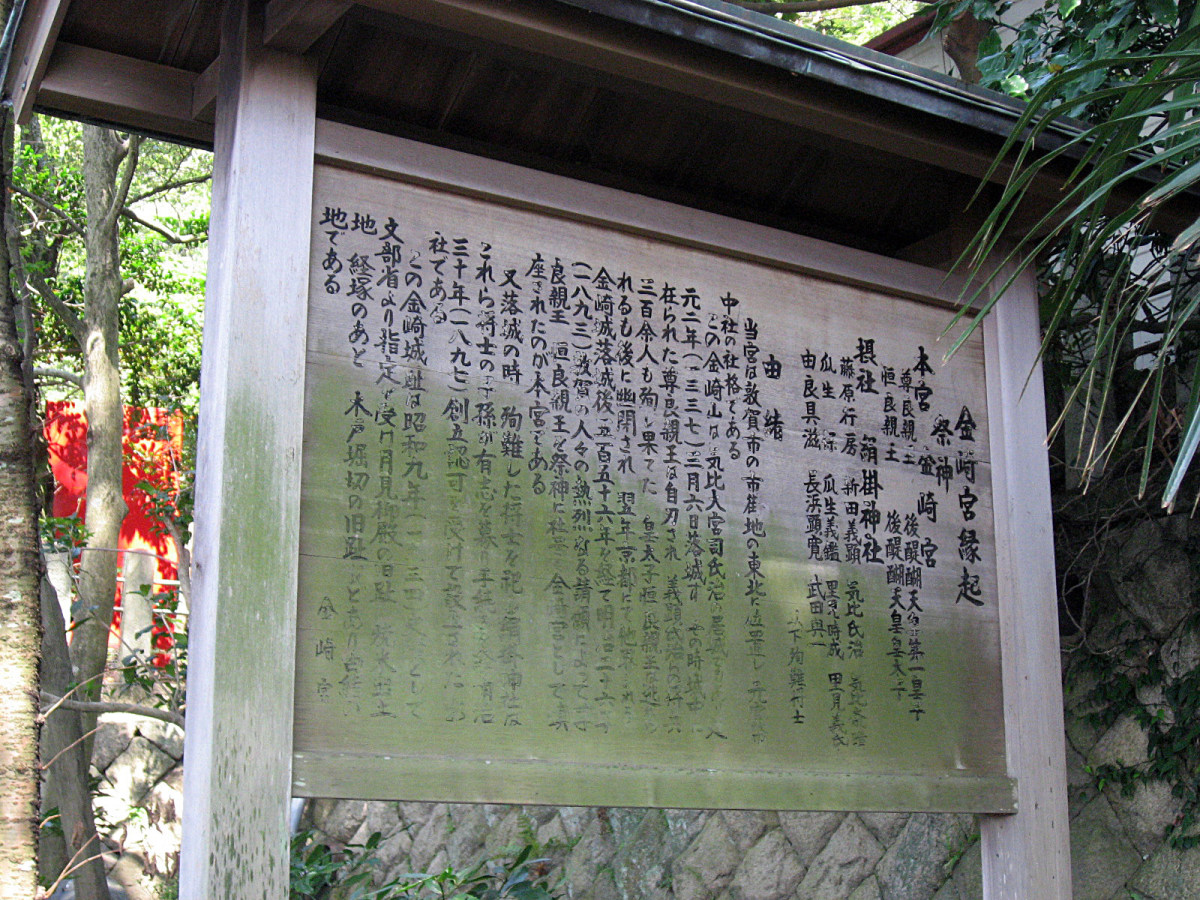 金崎宮縁起
本宮 金崎宮
祭神
尊良親王 後醍醐天皇第一皇子
恒良親王 後醍醐天皇皇太子
摂社 絹掛神社
藤原行房 新田義顕 気比氏治
瓜生 瓜生義鑑 里見時成 里見義氏
由良具滋 長浜顕寛 武田與一
以下殉難将士
由緒
当宮は敦賀市の市街地の東北に位置し元官幣
中社の社格である
この金崎山は気比大宮司氏治の居城
元二年(一三三七)三月六日落城す その時城中に
在られた尊良親王は自刃され 義顕氏治
三百余人も殉し果てた 皇太子恒良親王は
れるも後に幽閉され 翌年京都にて
金崎城落城後五百五十六年を経て明治二十六年
(一八九三)敦賀の人々の熱烈なる請願によって
良親王 恒良親王を祭神に 金崎宮として
座されたのが本宮である
又落城の時 殉難した将士を祀 絹掛神社は
これら将士の子孫が有志を募り
三十年(一八九七)創立認可を受けて
社である
この金崎城趾は昭和九年(一九三四)として
文部省より指定を受け月見御殿の旧趾
地 経塚のあと 木戸堀切の旧趾
地である
金崎宮